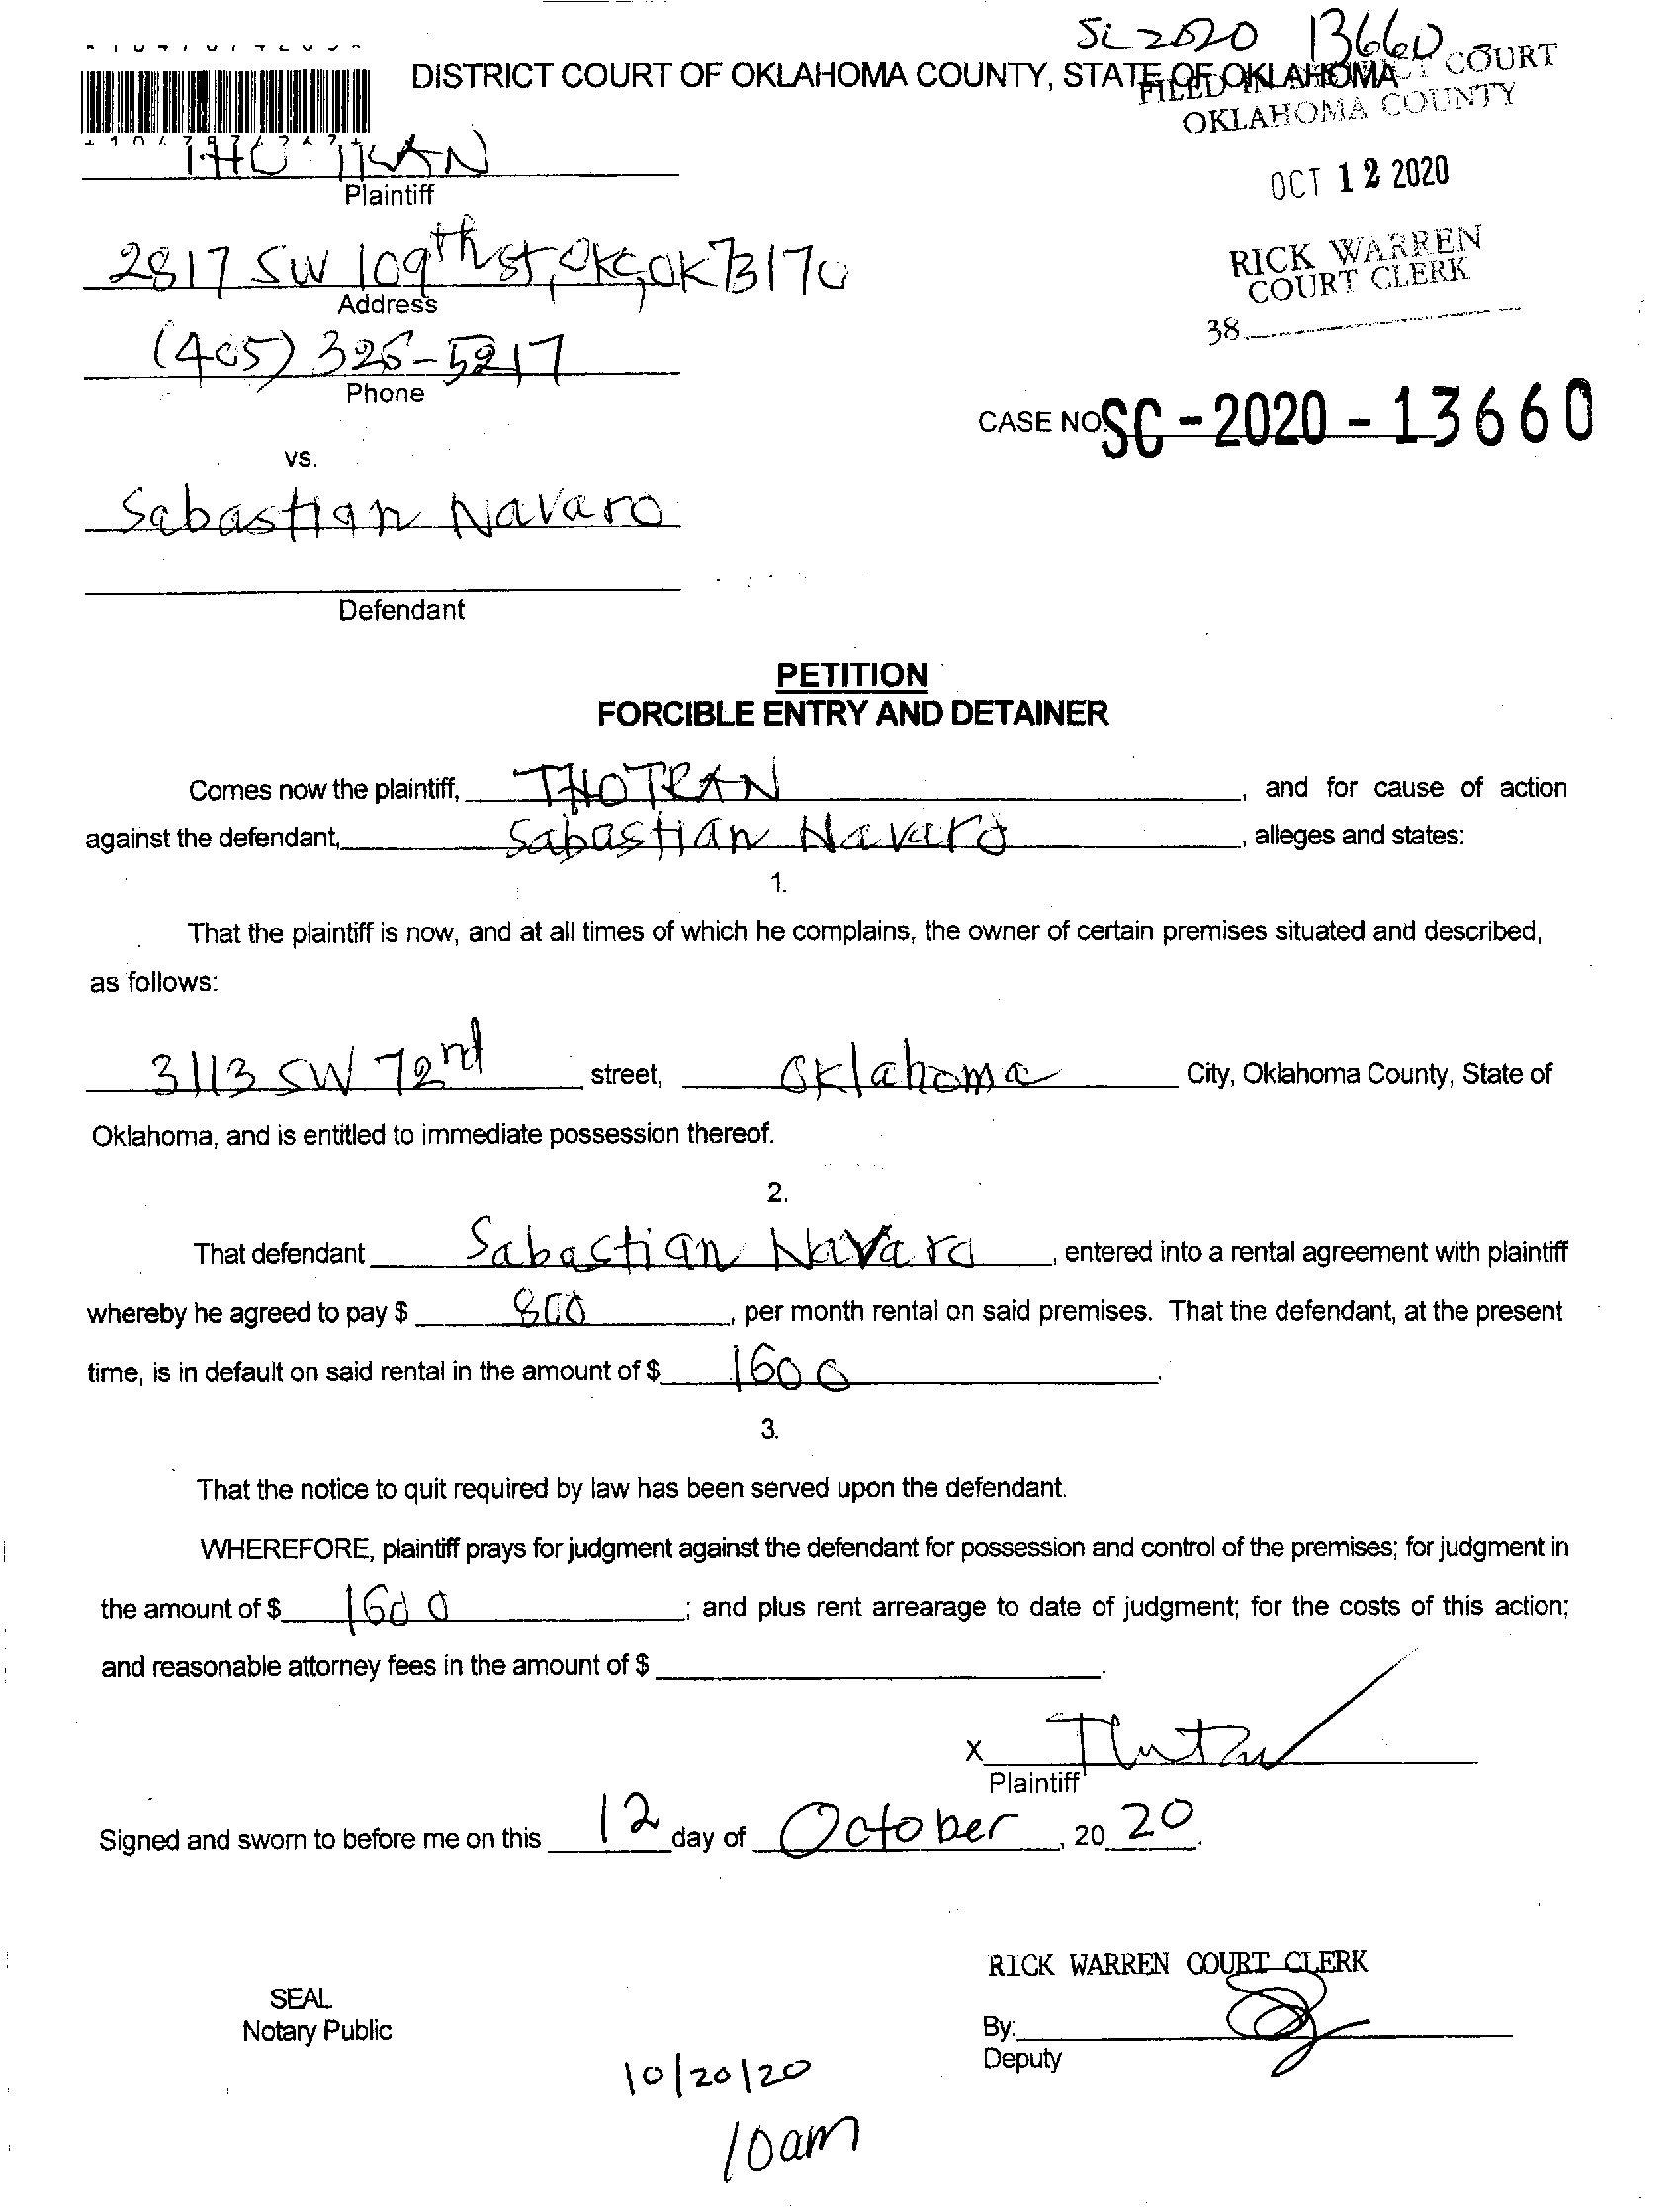 SC 2020 13660
DISTRICT COURT OF OKLAHOMA COUNTY, STATE OF OKLAHOMA
FILED IN COURT
OKLAHOMA COUNTY
OCT 12 2020
RICK WARREN
COURT CLERK
38
THO TRAN
Plaintiff
2817 SW 109th st, OKC, OK 73170
Address
(405) 326-5217
Phone
CASE NO. SC-2020-13660
vs.
Sabastian Navaro
Defendant
PETITION
FORCIBLE ENTRY AND DETAINER
Comes now the plaintiff, THO TRAN, and for cause of action
against the defendant, Sabastian Navaro, alleges and states:
1.
That the plaintiff is now, and at all times of which he complains, the owner of certain premises situated and described,
as follows:
3113 SW 72nd street, Oklahoma City, Oklahoma County, State of
Oklahoma, and is entitled to immediate possession thereof.
2.
That defendant Sabastian Navaro, entered into a rental agreement with plaintiff
whereby he agreed to pay $ 800, per month rental on said premises. That the defendant, at the present
time, is in default on said rental in the amount of $ 1600.
3.
That the notice to quit required by law has been served upon the defendant.
WHEREFORE, plaintiff prays for judgment against the defendant for possession and control of the premises; for judgment in
the amount of $ 1600; and plus rent arrearage to date of judgment; for the costs of this action;
and reasonable attorney fees in the amount of $
X
Plaintiff
Signed and sworn to before me on this 12 day of October, 20 20.
RICK WARREN COURT CLERK
SEAL
Notary Public
By:
Deputy
10/20/20
10am